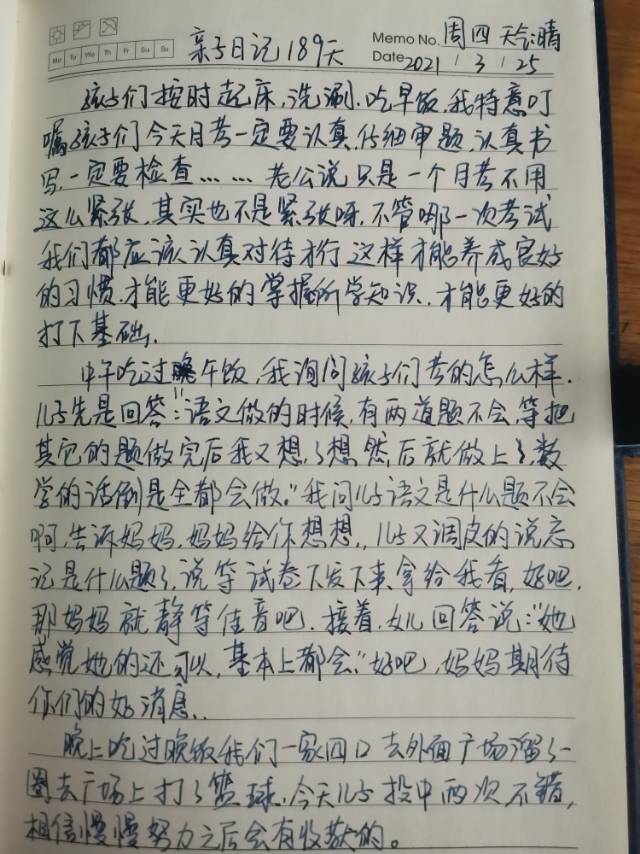 亲子日记189天 Memo No. 周四 天气:晴
Mo Tu We Th Fr Sa Su Date 2021 / 3 / 25
孩子们按时起床,洗涮.吃早饭.我特意叮
嘱孩子们今天月考一定要认真.仔细审题.认真书
写.一定要检查……老公说只是一个月考不用
这么紧张.其实也不是紧张呀.不管哪一次考试
我们都应该认真对待才行.这样才能养成良好
的习惯.才能更好的掌握所学知识.才能更好的
打下基础.
中午吃过午饭.我询问孩子们考的怎么样.
儿子先是回答:"语文做的时候,有两道题不会.等把
其它的题做完后我又想了想然后就做上了.数
学的话倒是全都会做."我问儿子语文是什么题不会
啊.告诉妈妈.妈妈给你想想..儿子又调皮的说忘
记是什么题了.说等试卷下发下来拿给我看.好吧.
那妈妈就静等佳音吧.接着.女儿回答说:"她
感觉她的还可以.基本上都会."好吧.妈妈期待
你们的好消息..
晚上吃过晚饭我们一家四口去外面广场溜了一
圈去广场上打了篮球.今天儿子投中两次不错,
相信慢慢努力之后会有收获的。